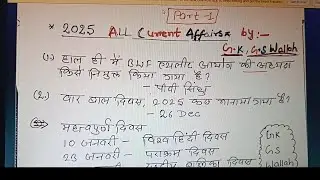 Part-1
* 2025 All Current Affairs* by:-
G.K, G.S Wallah
(1) हाल ही में BWF एथलीट आयोग की अध्यक्ष
किसे नियुक्त किया गया है?
- पीवी सिंधु
(2.) वीर बाल दिवस, 2025 कब मनाया गया है?
- 26 Dec
महत्वपूर्ण दिवस
10 जनवरी - विश्व हिंदी दिवस
23 जनवरी - पराक्रम दिवस
बालिका दिवस
GK
GS
Wallah